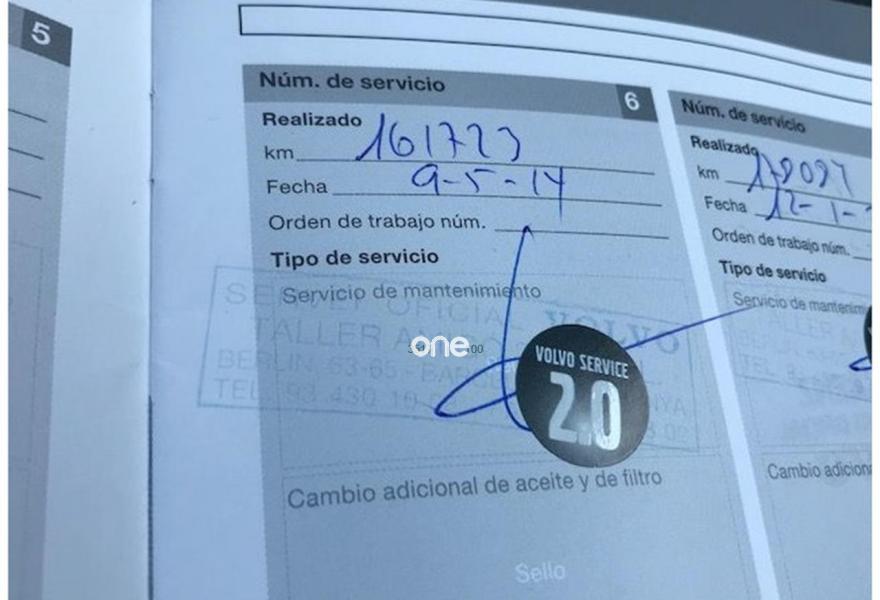 5
Núm. de servicio 6
Realizado
km 161723
Fecha 9-5-14
Orden de trabajo núm.
Tipo de servicio
Servicio de mantenimiento
TALLER
BERLIN 63-65 -
TEL. 93 430
VOLVO
one
VOLVO SERVICE
2.0
Cambio adicional de aceite y de filtro
Sello
Núm. de servicio
Realizado
km
Fecha 12-1-
Orden de trabajo núm.
Tipo de servicio
Servicio de
Cambio